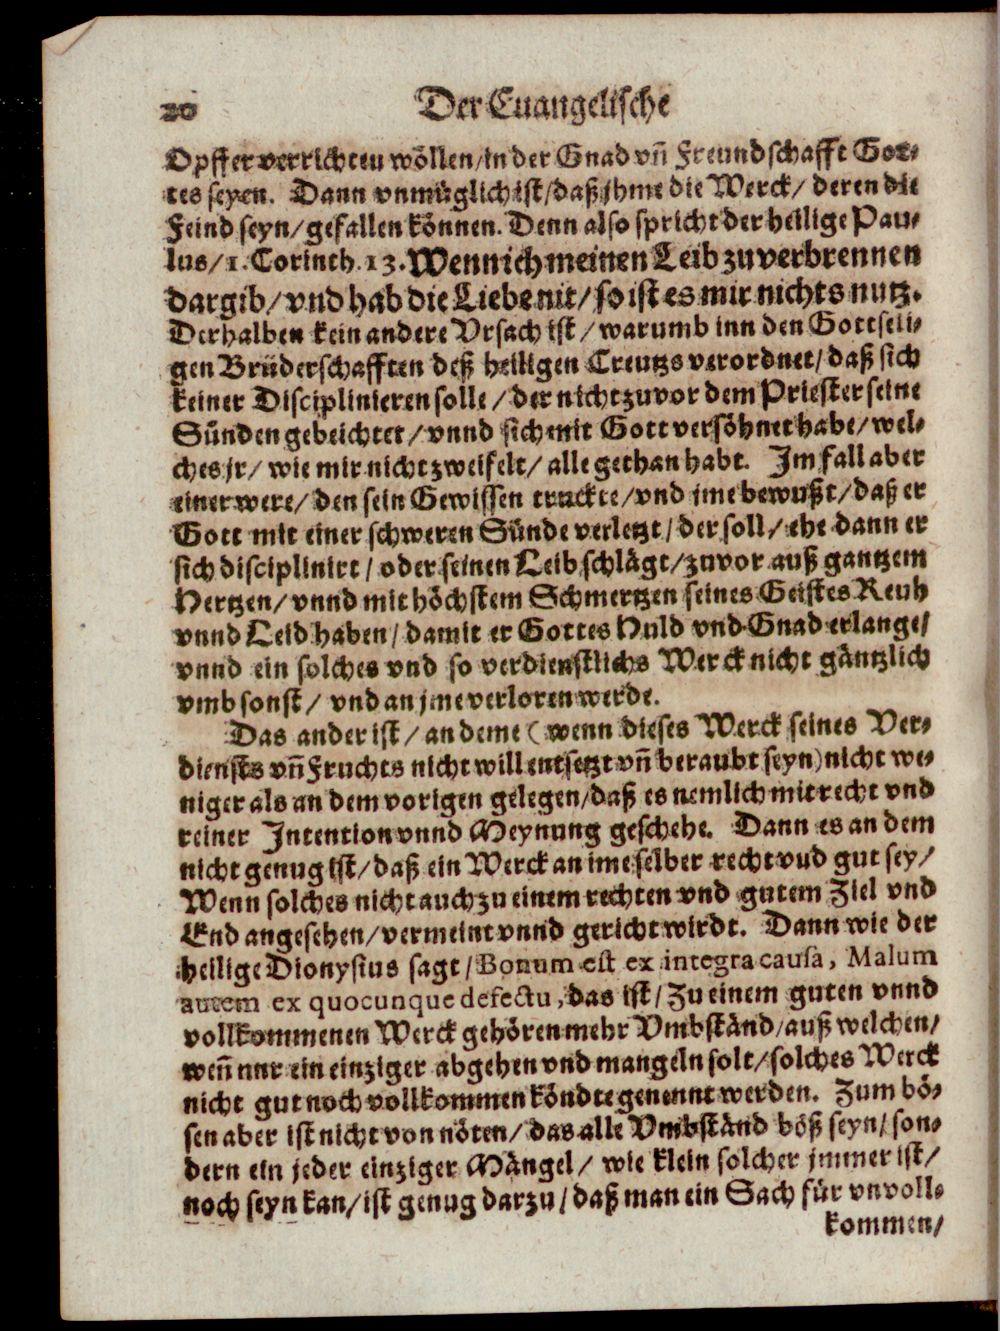 20 Der Euangelische
Opffer verrichten wöllen/in der Gnad vñ Freundschafft Got-
tes seyen. Dann vnmüglich ist/daß jhme die Werck/ deren die
Feind seyn/gefallen können. Denn also spricht der heilige Pau-
lus/1. Corinth. 13. Wenn ich meinen Leib zuverbrennen
dargib/vnd hab die Liebe nit/so ist es mir nichts nutz.
Derhalben kein andere Vrsach ist/warumb inn den Gottseli-
gen Brüderschafften deß heiligen Creutzs verordnet/daß sich
keiner Disciplinieren solle/der nicht zuvor dem Priester seine
Sünden gebeichtet/vnnd sich mit Gott versöhnet habe/wel-
ches jr/wie mir nicht zweifelt/alle gethan habt. Im fall aber
einer were/den sein Gewissen truckte/vnd ime bewußt/daß er
Gott mit einer schweren Sünde verletzt/der soll/ehe dann er
sich disciplinirt/oder seinen Leib schlägt/zuvor auß gantzem
Hertzen/vnnd mit höchstem Schmertzen seines Geistes Reuh
vnnd Leid haben/damit er Gottes Huld vnd Gnad erlange/
vnnd ein solches vnd so verdienstlichs Werck nicht gäntzlich
vmb sonst/ vnd an jme verloren werde.
Das ander ist/an deme (wenn dieses Werck seines Ver-
diensts vñ Fruchts nicht will entsetzt vñ beraubt seyn) nicht we-
niger als an dem vorigen gelegen/daß es nemlich mit recht vnd
reiner Intention vnnd Meynung geschehe. Dann es an dem
nicht genug ist/daß ein Werck an ime selber recht vnd gut sey/
Wenn solches nicht auch zu einem rechten vnd gutem Ziel vnd
End angesehen/vermeint vnnd gericht wirdt. Dann wie der
heilige Dionysius sagt/Bonum est ex integra causa, Malum
autem ex quocunque defectu, das ist/Zu einem guten vnnd
vollkommenen Werck gehören mehr Vmbständ/auß welchen/
weñ nur ein einziger abgehen vnd mangeln solt/solches Werck
nicht gut noch vollkommen köndte genennt werden. Zum bö-
sen aber ist nicht von nöten/das alle Vmbständ böß seyn/son-
dern ein jeder einziger Mängel/ wie klein solcher jmmer ist/
noch seyn kan/ist genug darzu/daß man ein Sach für vnvoll-
kommen/